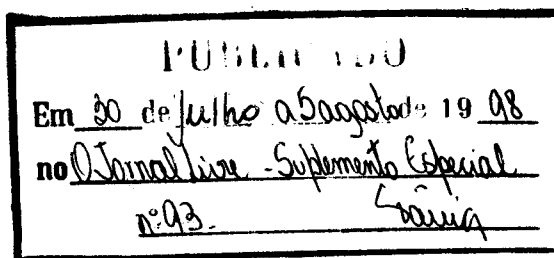 PUBLICADO
Em 30 de julho a 5 agosto de 1998
no O Jornal Livre - Suplemento Especial
nº 93.